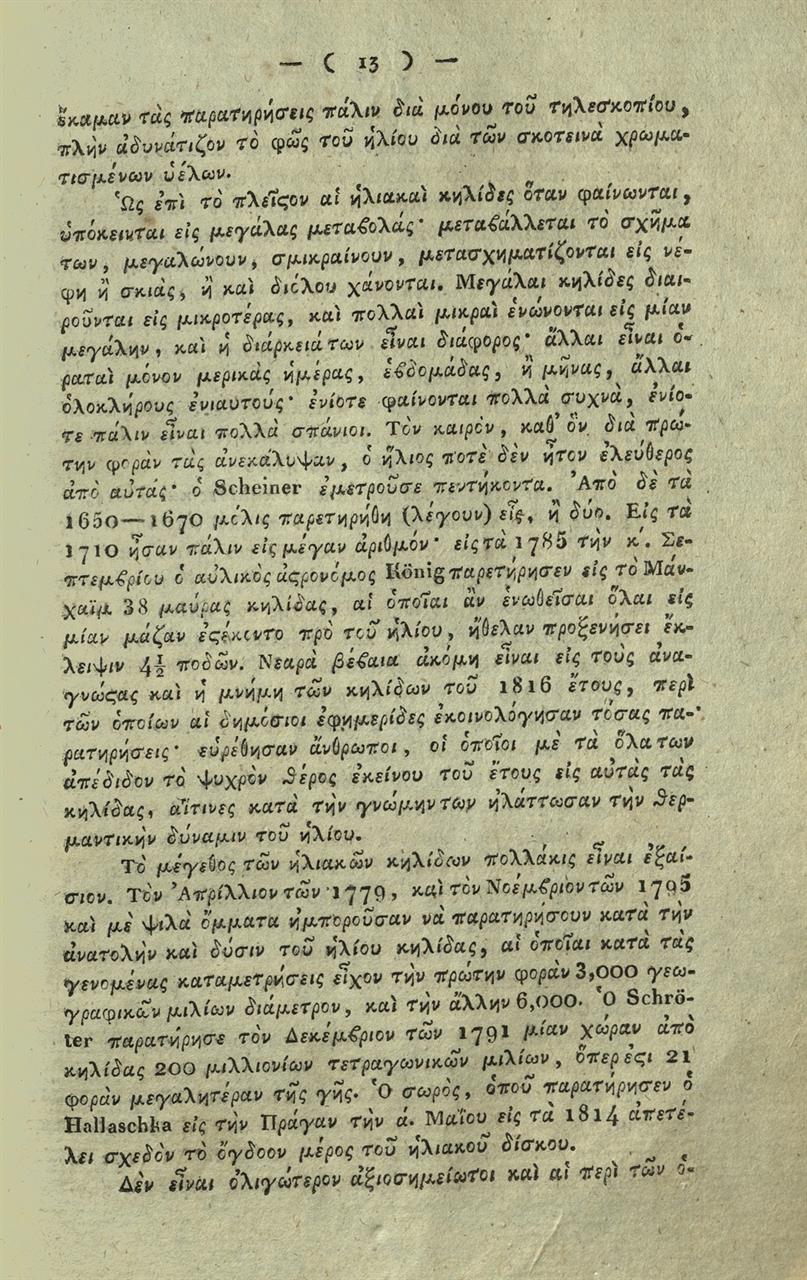 — ( 13 ) —
ἔκαμαν τὰς παρατηρήσεις πάλιν διὰ μόνου τοῦ τηλεσκοπίου,
πλὴν ἀδυνάτιζον τὸ φῶς τοῦ ἡλίου διὰ τῶν σκοτεινὰ χρωμα-
τισμένων ὑέλων.
Ὡς ἐπὶ τὸ πλεῖϛον αἱ ἡλιακαὶ κηλίδες ὅταν φαίνωνται,
ὑπόκεινται εἰς μεγάλας μεταβολάς· μεταβάλλεται τὸ σχῆμα
των, μεγαλώνουν, σμικραίνουν, μετασχηματίζονται εἰς νέ-
φη ἢ σκιὰς, ἢ καὶ διόλου χάνονται. Μεγάλαι κηλίδες διαι-
ροῦνται εἰς μικροτέρας, καὶ πολλαὶ μικραὶ ἑνώνονται εἰς μίαν
μεγάλην, καὶ ἡ διάρκειά των εἶναι διάφορος· ἄλλαι εἶναι ὁ-
ραταὶ μόνον μερικὰς ἡμέρας, ἑβδομάδας, ἢ μῆνας, ἄλλαι
ὁλοκλήρους ἐνιαυτούς· ἐνίοτε φαίνονται πολλὰ συχνὰ, ἐνίο-
τε πάλιν εἶναι πολλὰ σπάνιοι. Τὸν καιρὸν, καθ᾽ ὃν διὰ πρώ-
την φορὰν τὰς ἀνεκάλυψαν, ὁ ἥλιος ποτὲ δὲν ἦτον ἐλεύθερος
ἀπὸ αὐτάς· ὁ Scheiner ἐμετροῦσε πεντήκοντα. Ἀπὸ δὲ τὰ
1650—1670 μόλις παρετηρήθη (λέγουν) εἷς, ἢ δύο. Εἰς τὰ
1710 ἦσαν πάλιν εἰς μέγαν ἀριθμόν· εἰς τὰ 1785 τὴν κ΄. Σε-
πτεμβρίου ὁ αὐλικὸς ἀϛρονόμος König παρετήρησεν εἰς τὸ Μάν-
χαϊμ 38 μαύρας κηλίδας, αἱ ὁποῖαι ἂν ἑνωθεῖσαι ὅλαι εἰς
μίαν μάζαν ἐϛέκοντο πρὸ τοῦ ἡλίου, ἤθελαν προξενήσει ἔκ-
λειψιν 4½ ποδῶν. Νεαρὰ βέβαια ἀκόμη εἶναι εἰς τοὺς ἀνα-
γνώϛας καὶ ἡ μνήμη τῶν κηλίδων τοῦ 1816 ἔτους, περὶ
τῶν ὁποίων αἱ δημόσιοι ἐφημερίδες ἐκοινολόγησαν τόσας πα-
ρατηρήσεις· εὑρέθησαν ἄνθρωποι, οἱ ὁποῖοι μὲ τὰ ὅλα των
ἀπέδιδον τὸ ψυχρὸν θέρος ἐκείνου τοῦ ἔτους εἰς αὐτὰς τὰς
κηλίδας, αἵτινες κατὰ τὴν γνώμην των ἠλάττωσαν τὴν θερ-
μαντικὴν δύναμιν τοῦ ἡλίου.
Τὸ μέγεθος τῶν ἡλιακῶν κηλίδων πολλάκις εἶναι ἐξαί-
σιον. Τὸν Ἀπρίλλιον τῶν 1779, καὶ τὸν Νοέμβριον τῶν 1795
καὶ μὲ ψιλὰ ὄμματα ἠμποροῦσαν νὰ παρατηρήσουν κατὰ τὴν
ἀνατολὴν καὶ δύσιν τοῦ ἡλίου κηλίδας, αἱ ὁποῖαι κατὰ τὰς
γενομένας καταμετρήσεις εἶχον τὴν πρώτην φορὰν 3,000 γεω-
γραφικῶν μιλίων διάμετρον, καὶ τὴν ἄλλην 6,000. Ὁ Schrö-
ter παρατήρησε τὸν Δεκέμβριον τῶν 1791 μίαν χώραν ἀπὸ
κηλίδας 200 μιλλιονίων τετραγωνικῶν μιλίων, ὅπερ ἐϛι 21
φορὰν μεγαλητέραν τῆς γῆς. Ὁ σωρὸς, ὁποῦ παρατήρησεν ὁ
Hallaschka εἰς τὴν Πράγαν τὴν ά. Μαΐου εἰς τὰ 1814 ἀπετέ-
λει σχεδὸν τὸ ὄγδοον μέρος τοῦ ἡλιακοῦ δίσκου.
Δὲν εἶναι ὀλιγώτερον ἀξιοσημείωτοι καὶ αἱ περὶ τῶν ὁ-